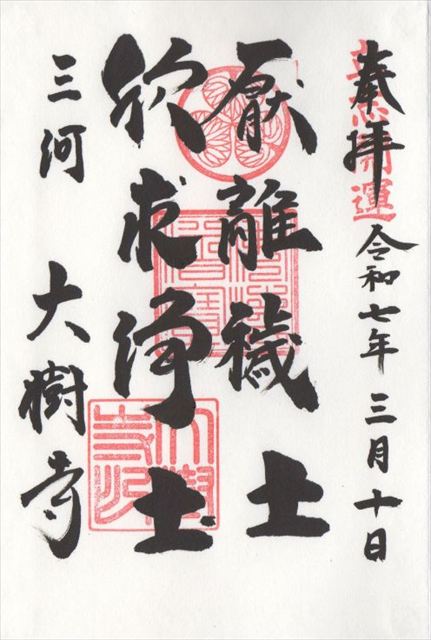 奉拝 令和七年三月十日
厭離穢土
欣求浄土
三河 大樹寺
開運